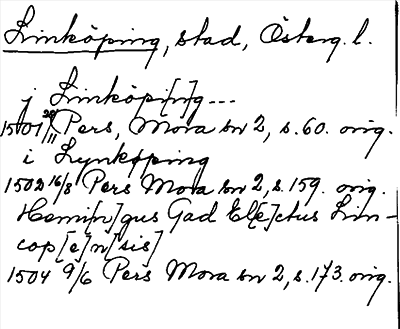 Linköping, stad, Österg. l.
j Linköpi[n]g...
1501 28/11 Pers, Mora sn 2, s. 60. orig.
i Lynkøping
1502 16/8 Pers Mora sn 2, s. 159. orig.
Hemi[n]gus Gad El[e]ctus Lin-
cop[e]n[sis]
1504 9/6 Pers Mora sn 2, s. 173. orig.